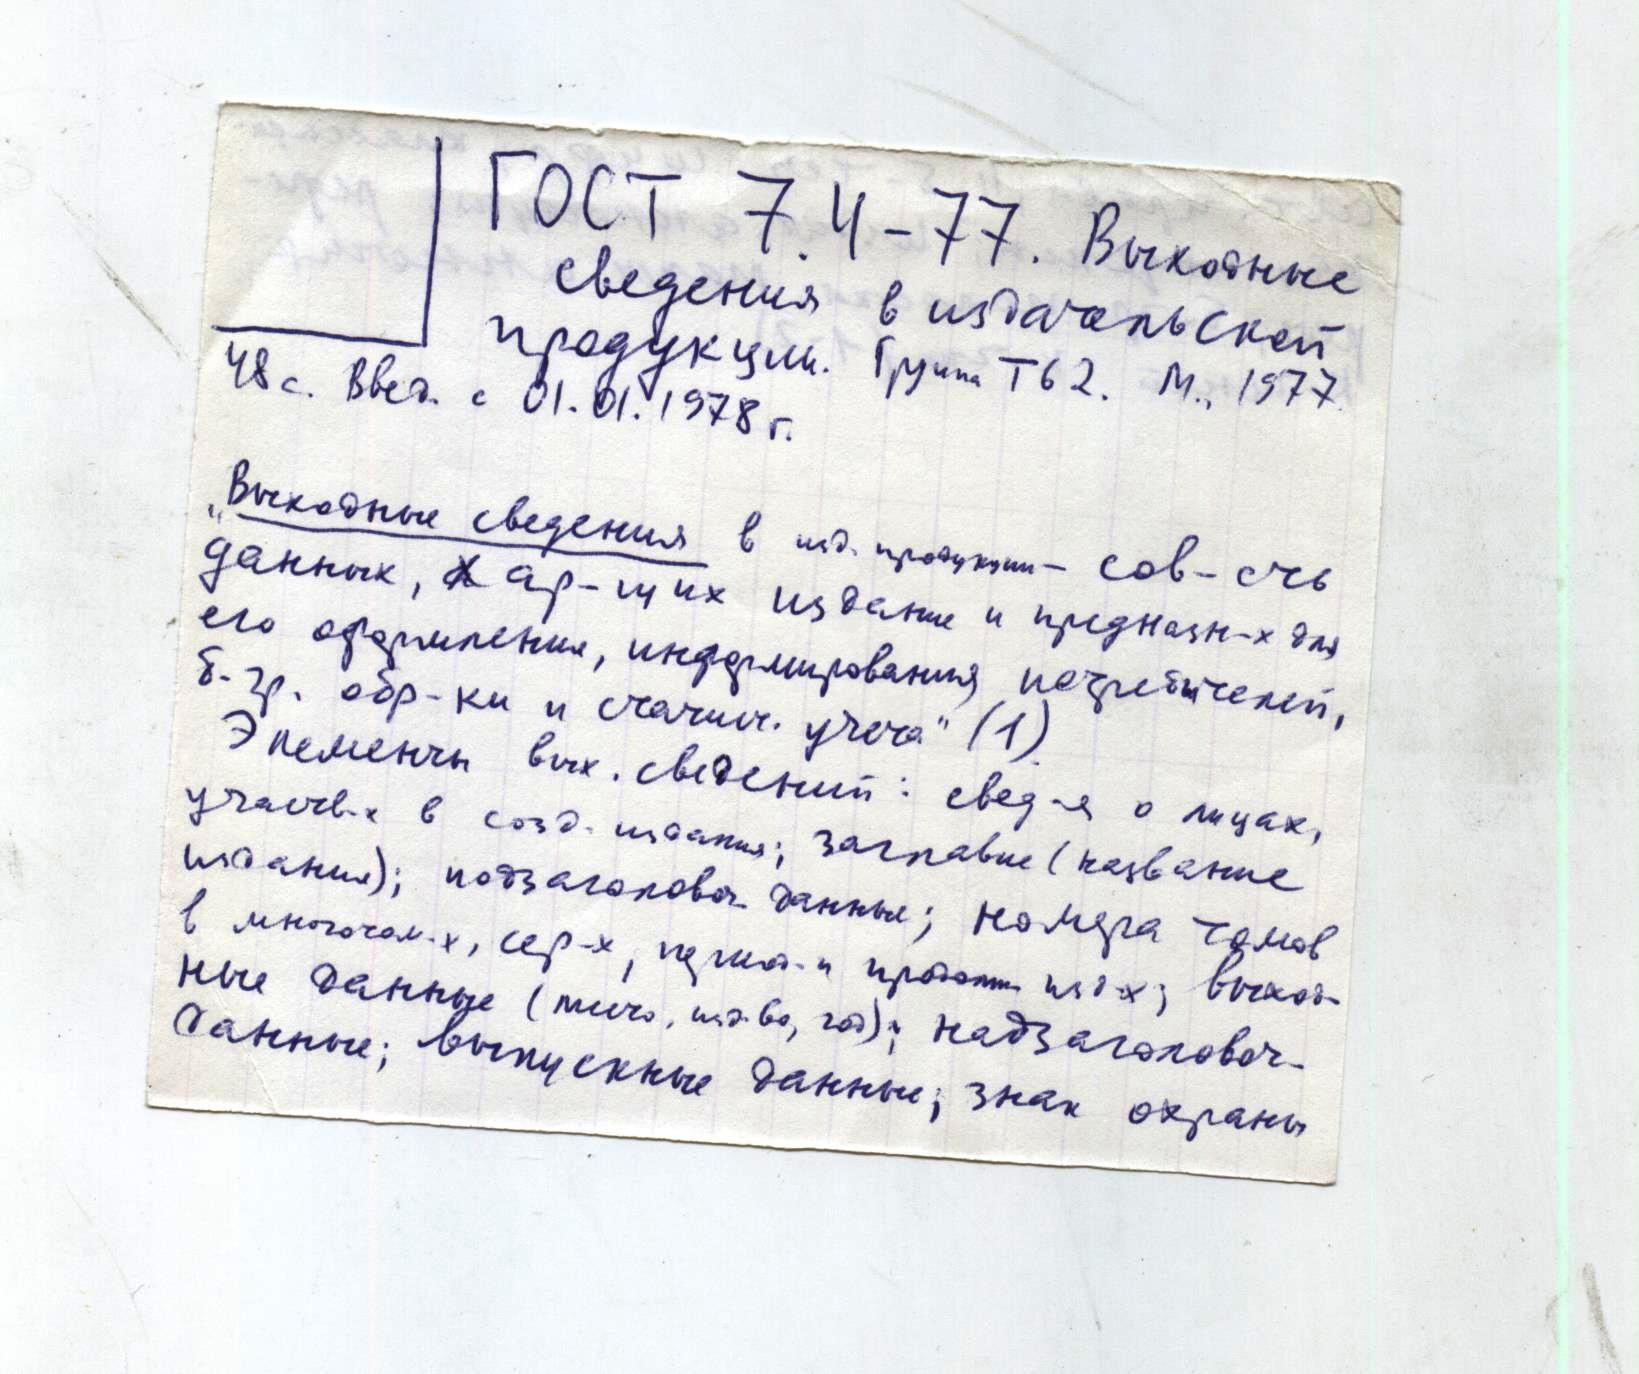 ГОСТ 7.4-77. Выходные
сведения в издательской
продукции. Группа Т62. М., 1977.
48 с. Введ. с 01.01.1978 г.
„Выходные сведения в изд. продукции – сов-сть
данных, хар-щих издание и предназн-х для
его оформления, информирования потребителей,
б-гр. обр-ки и статист. учета" (1).
Элементы вых. сведений: свед-я о лицах,
участв-х в созд. издания; заглавие (название
издания); подзаголовоч. данные; номера томов
в многотом-х, сер-х, период. и продолж. изд-х; выход-
ные данные (место, изд-во, год); надзаголовоч-
данные; выпускные данные; знак охраны